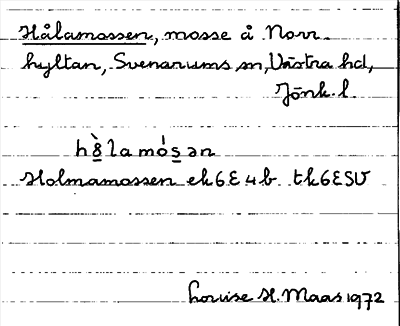 Hålamossen, mosse å Norr-
hyltan, Svenarums sn, Västra hd,
Jönk. l.
hò̲lamós̲ən
Holmamossen ek6E4b tk6ESV
Louise H. Maas 1972